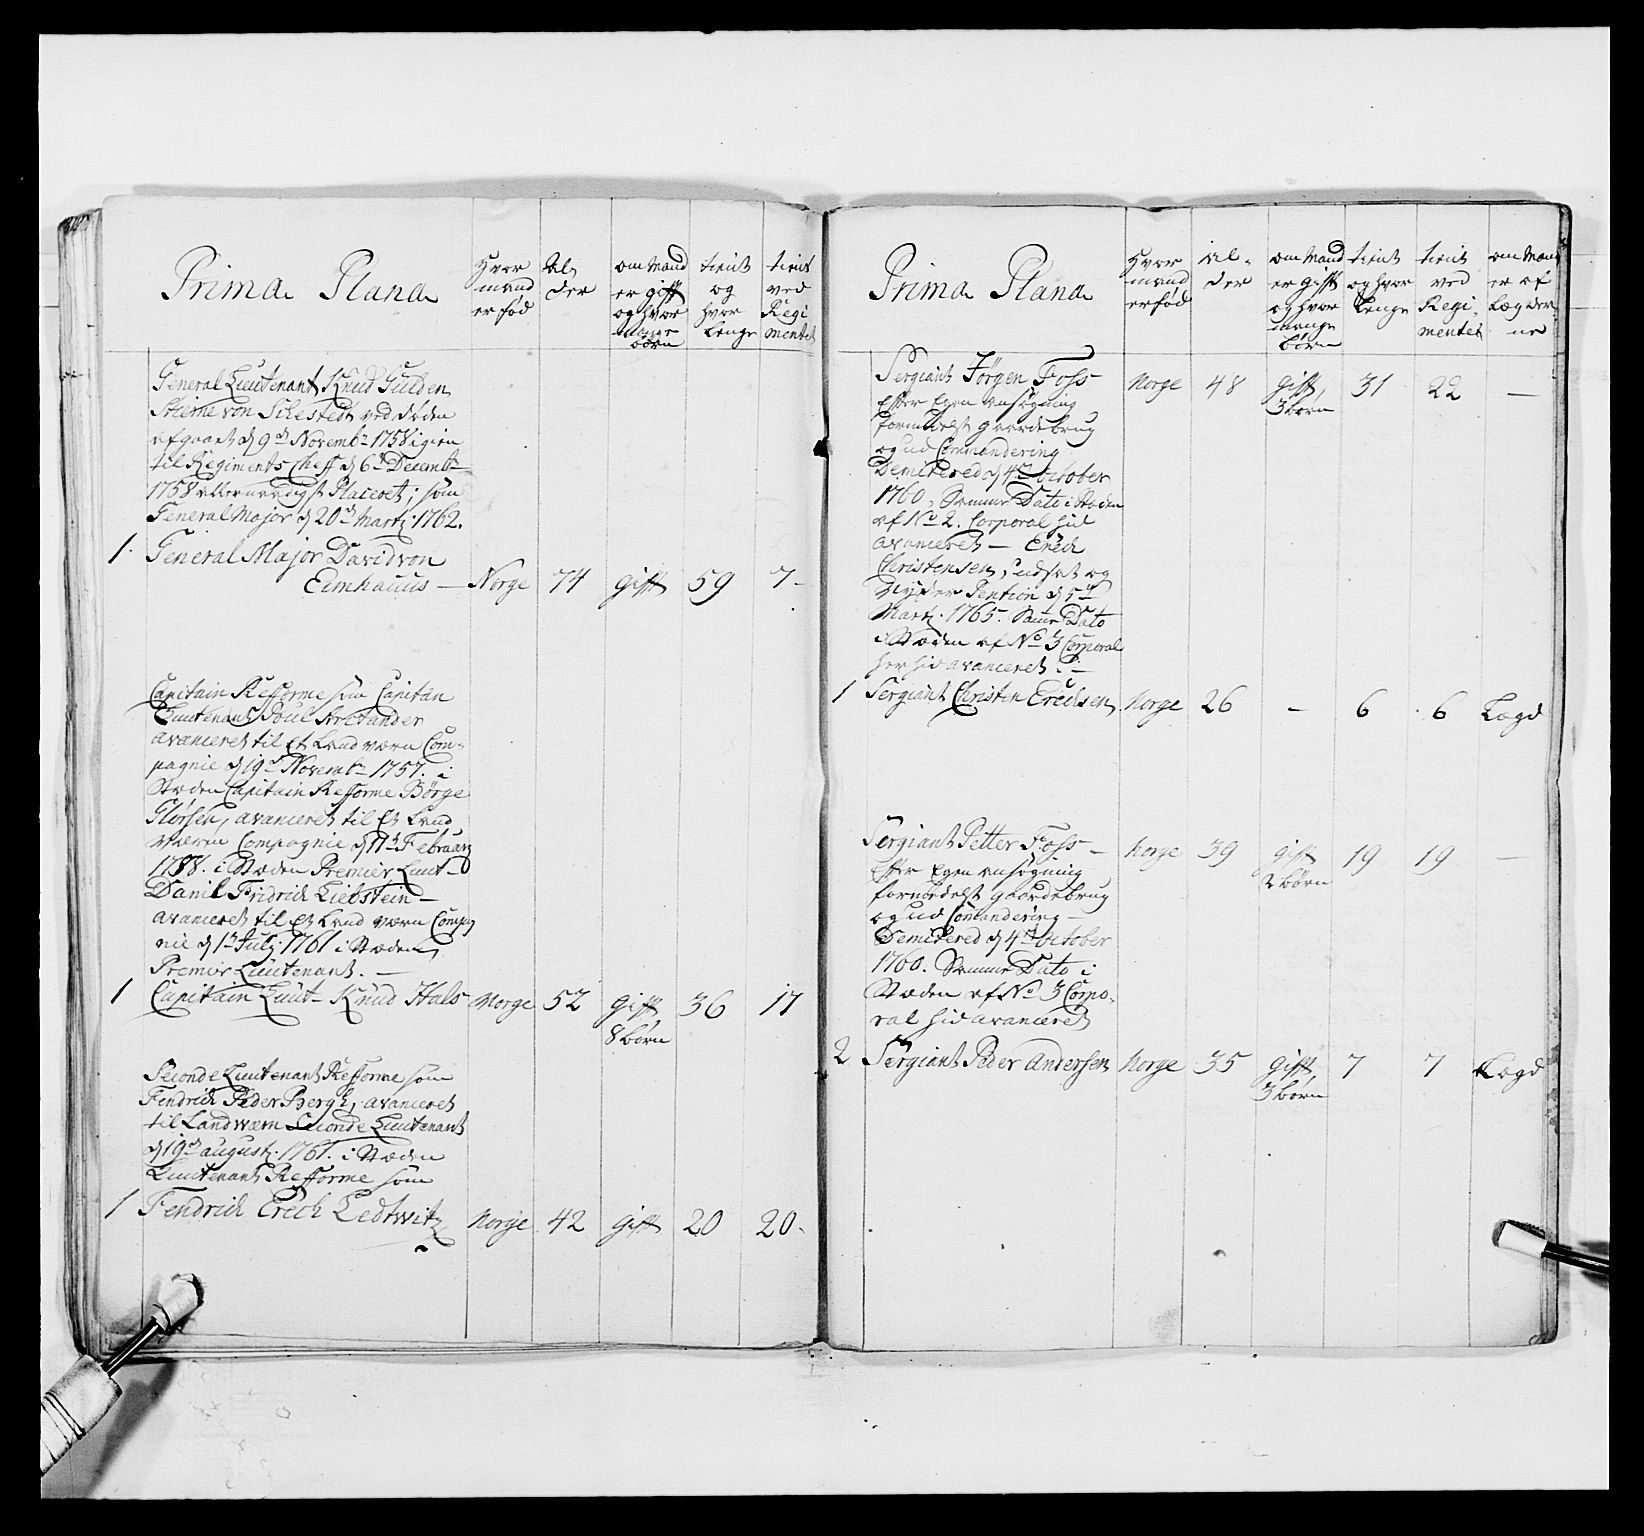 Prima Plana
Hvor mand er fød
Al der
om Mand er gifft og hvor mange börn
tient og hvor lenge
tient ved Regi mentet
General Lieutenant Knud Gulden
Stierne von Silestedt ved døden
afgaaet d 9de Novembr 1758 igien
til Regiments Cheff d 6te Decembr
1758 allernaadigst Placeret; som
General Major d 20de Martz 1762.
1. General Major David von
Eimhauus — Norge 74 gifft 59 7-
Capitain Refforme som Capitān
Lieutenant Poul Arctander
avanceret til Et Landværn Com-
pagnie d 19de Novembr 1757. i
Stæden Capitain Refforme Börge
avanceret til Et Land
værn Compagnie d 11te Februarj
1758. i Stæden Premier Lieut-
Danil Fridrich Liebstein —
avanceret til Et Land værn Compag
nie d 1te Julj 1761 i Stæden,
Premier Lieutenant. —
1 Capitain Lieut- Knud Hals Norge 52 gifft, 8 börn 36 17
Seconde Lieutenant Refforme som
Fendrich Peder Bergh, avanceret
til Landwærn Seconde Lieutenant
d 19de augustj. 1761. i Stæden
Lieutenant Refforme som
1 Fendrich Erech Ledtwitz Norge 42 gifft 20 20-
Prima Plana
Hvor mand er fød
Al- der
om Mand er gifft og hvor mange börn
tient og hvor lenge
tient ved Regi- mentet
om Mand er af Lægder ne
Sergiant Jörgen Foss Norge 48 gifft, 3 börn 31 22 —
Efter Egen ansögning
formedelst gaardebrug
og ud Commandering
Demitered d 4de October
1760. Samme Dato i Stæden
af No 2. Corporal hid
avanceret — Erech
Christensen, udsat og
Nyder Pention d 5te
Martz. 1765. Same Dato
i Stæden af No 3 Corporal
her hid avanceret. —
1 Sergiant Christen Erechsen Norge 26 - 6 6 Lægd
Sergiant Petter Foss — Norge 39 gifft 2 börn 19 19 —
Efter Egen ansögning
formedelst gaardebrug
og ud Comandering —
Demitered d 4de October
1760. Samme Dato i
Stæden af No 3 Corpo-
ral hid avanceret
2 Sergiant Peder Andersen Norge 35 gifft, 3 börn 7 7 Lægd